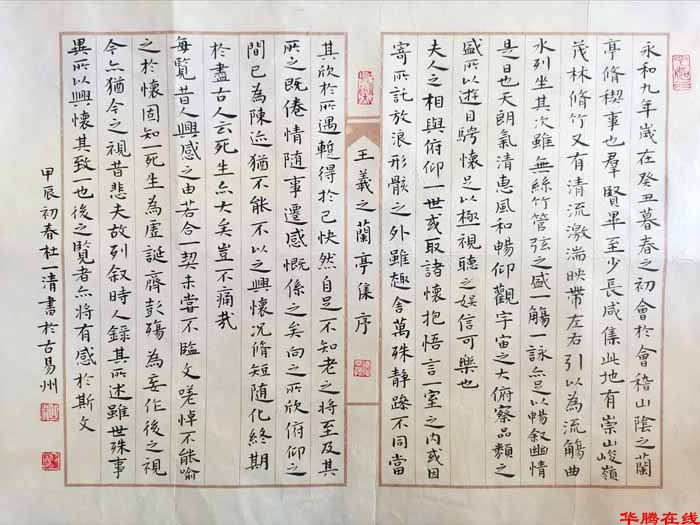 永和九年歲在癸丑暮春之初會於會稽山陰之蘭
亭脩稧事也羣賢畢至少長咸集此地有崇山峻嶺
茂林脩竹又有清流激湍映帶左右引以為流觴曲
水列坐其次雖無絲竹管弦之盛一觴一詠亦足以暢敘幽情
是日也天朗氣清惠風和暢仰觀宇宙之大俯察品類之
盛所以遊目騁懷足以極視聽之娛信可樂也
夫人之相與俯仰一世或取諸懷抱悟言一室之內或因
寄所託放浪形骸之外雖趣舍萬殊靜躁不同當
王羲之蘭亭集序
其欣於所遇暫得於己快然自足不知老之將至及其
所之既倦情隨事遷感慨係之矣向之所欣俯仰之
間已為陳迹猶不能不以之興懷況脩短隨化終期
於盡古人云死生亦大矣豈不痛哉
每覽昔人興感之由若合一契未嘗不臨文嗟悼不能喻
之於懷固知一死生為虛誕齊彭殤為妄作後之視
今亦猶今之視昔悲夫故列敘時人錄其所述雖世殊事
異所以興懷其致一也後之覽者亦將有感於斯文
甲辰初春杜一清書於古易州
华腾在线